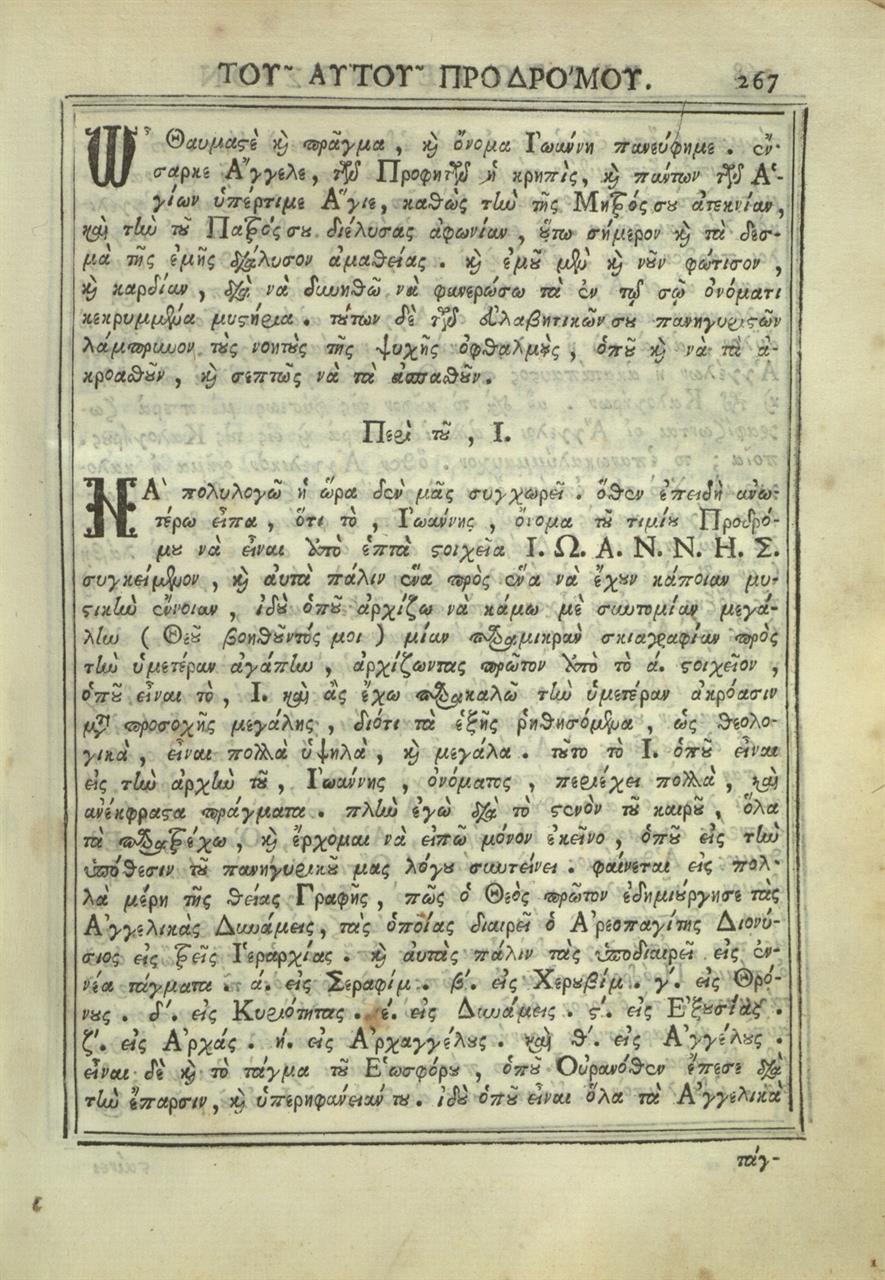 ΤΟΥ͂ ΑΥΤΟΥ͂ ΠΡΟΔΡΟ΄ΜΟΥ. 267
Ω῏ Θαυμαστὲ καὶ πρᾶγμα, καὶ ὄνομα Γωάννη πανεύφημε. ἔν-
σαρκε Α῎γγελε, τῶν Προφητῶν ἡ κρηπὶς, καὶ πάντων τῶν Α῾-
γίων ὑπέρτιμε Α῞γιε, καθὼς τὴν τῆς Μητρός σου ἀτεκνίαν,
καὶ τὴν τοῦ Πατρός σου διέλυσας ἀφωνίαν, οὕτω σήμερον καὶ τὰ δεσ-
μὰ τῆς ἐμῆς διάλυσον ἀμαθείας. καὶ ἐμοῦ μὲν καὶ νοῦν φώτισον,
καὶ καρδίαν, διὰ νὰ δυνηθῶ νὰ φανερώσω τὰ ἐν τῷ σῷ ὀνόματι
κεκρυμμένα μυστήρια. τούτων δὲ τῶν εὐλαβητικῶν σου πανηγυριστῶν
λάμπρυνον τοὺς νοητοὺς τῆς ψυχῆς ὀφθαλμοὺς, ὁποῦ καὶ νὰ τὰ ἀ-
κροαθοῦν, καὶ σεπτῶς νὰ τὰ ἀσπαθοῦν.
Περὶ τοῦ, Ι.
ΝΑ` πολυλογῶ ἡ ὥρα δὲν μᾶς συγχωρεῖ. ὅθεν ἐπειδὴ ἀνω-
τέρω εἶπα, ὅτι τὸ, Γωάννης, ὄνομα τοῦ τιμίου Προδρό-
μου νὰ εἶναι ἀπὸ ἑπτὰ στοιχεῖα Ι. Ω. Α. Ν. Ν. Η. Σ.
συγκείμενον, καὶ αὐτὰ πάλιν ἕνα πρὸς ἕνα νὰ ἔχουν κάποιαν μυ-
στικὴν ἔννοιαν, ἰδοὺ ὁποῦ ἀρχίζω νὰ κάμω μὲ συντομίαν μεγά-
λην (Θεοῦ βοηθοῦντός μοι) μίαν παραμικρὰν σκιαγραφίαν πρὸς
τὴν ὑμετέραν ἀγάπην, ἀρχίζωντας πρῶτον ἀπὸ τὸ ά. στοιχεῖον,
ὁποῦ εἶναι τὸ, Ι. καὶ ἂς ἔχω παρακαλῶ τὴν ὑμετέραν ἀκρόασιν
μετὰ προσοχῆς μεγάλης, διότι τὰ ἑξῆς ῥηθησόμενα, ὡς θεολο-
γικὰ, εἶναι πολλὰ ὑψηλὰ, καὶ μεγάλα. τοῦτο τὸ Ι. ὁποῦ εἶναι
εἰς τὴν ἀρχὴν τοῦ, Γωάννης, ὀνόματος, περιέχει πολλὰ, καὶ
ἀνέκφραστα πράγματα. πλὴν ἐγὼ διὰ τὸ στενὸν τοῦ καιροῦ, ὅλα
τὰ παρατρέχω, καὶ ἔρχομαι νὰ εἰπῶ μόνον ἐκεῖνο, ὁποῦ εἰς τὴν
ὑπόθεσιν τοῦ πανηγυρικοῦ μας λόγου συντείνει. φαίνεται εἰς πολ-
λὰ μέρη τῆς θείας Γραφῆς, πῶς ὁ Θεὸς πρῶτον ἐδημιούργησε τὰς
Α᾿γγελικὰς Δυνάμεις, τὰς ὁποίας διαιρεῖ ὁ Α᾿ρεοπαγίτης Διονύ-
σιος εἰς τρεῖς Γεραρχίας. καὶ αὐτὰς πάλιν τὰς ὑποδιαιρεῖ εἰς ἐν-
νέα τάγματα. ά. εἰς Σεραφίμ. β΄. εἰς Χερουβίμ. γ΄. εἰς Θρό-
νους. δ΄. εἰς Κυριότητας. έ. εἰς Δυνάμεις. ϛ΄. εἰς Ε᾿ξουσίας.
ζ΄. εἰς Α᾿ρχάς. ή. εἰς Α᾿ρχαγγέλους. καὶ θ΄. εἰς Α᾿γγέλους.
εἶναι δὲ καὶ τὸ τάγμα τοῦ Ε῾ωσφόρου, ὁποῦ Οὐρανόθεν ἔπεσε διὰ
τὴν ἔπαρσιν, καὶ ὑπερηφάνειάν του. ἰδοὺ ὁποῦ εἶναι ὅλα τὰ Α᾿γγελικὰ
τάγ-